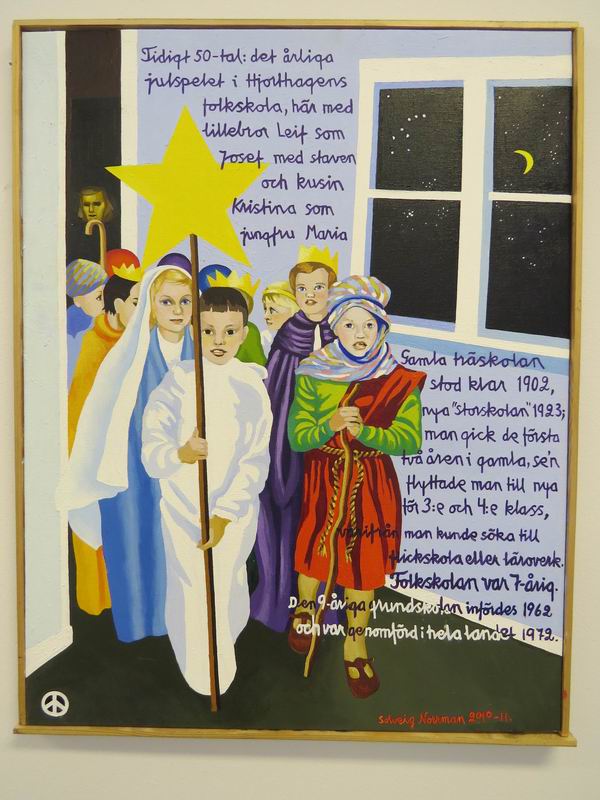 Tidigt 50-tal: det årliga
julspelet i Hjorthagens
folkskola, här med
lillebror Leif som
Josef med staven
och kusin
Kristina som
jungfru Maria
Gamla träskolan
stod klar 1902,
nya "storskolan" 1923;
man gick de första
två åren i gamla, se'n
flyttade man till nya
för 3:e och 4:e klass,
varifrån man kunde söka till
flickskola eller läroverk.
Folkskolan var 7-årig.
Den 9-åriga grundskolan infördes 1962
och var genomförd i hela landet 1972.
Solveig Norrman 2010-11.